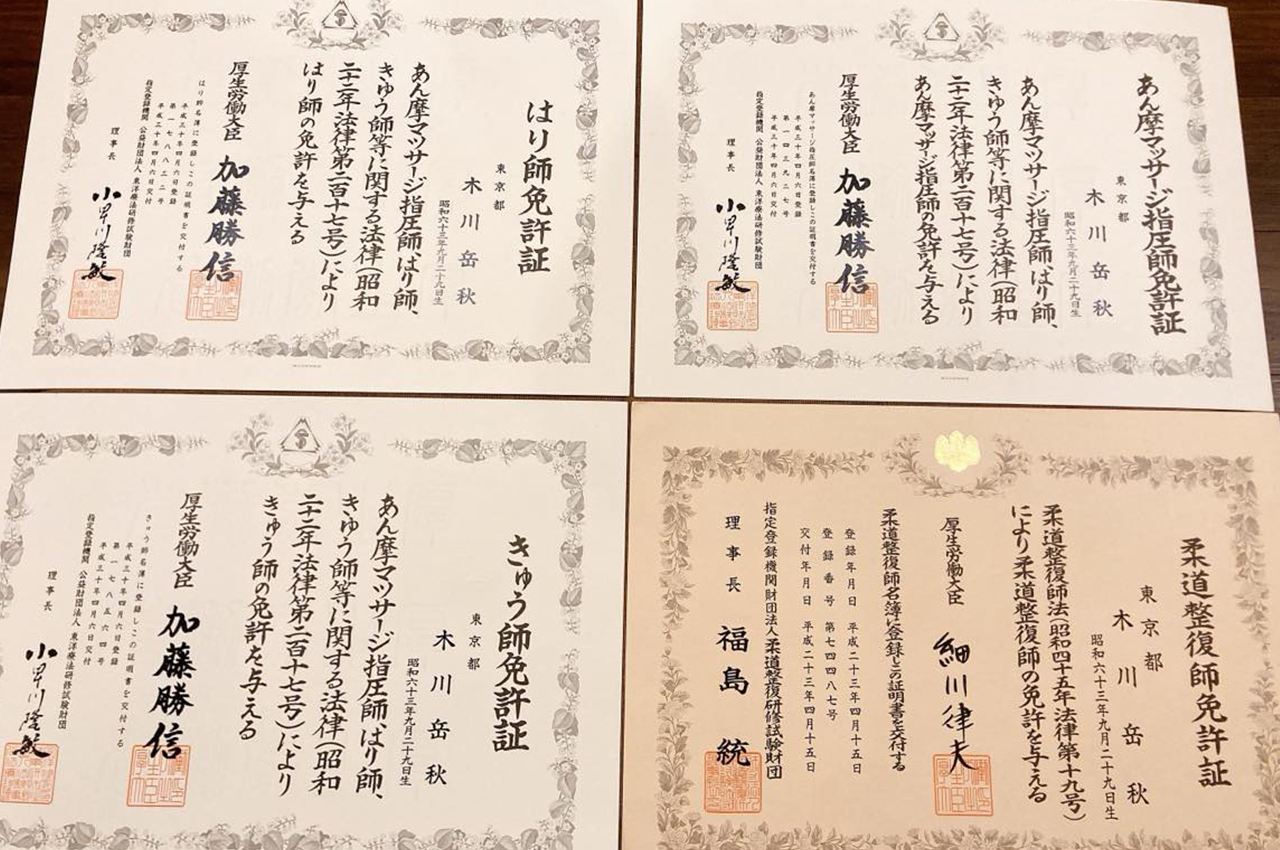 はり師免許証
東京都
木川岳秋
昭和六十三年九月二十九日生
あん摩マツサージ指圧師、はり師、
きゆう師等に関する法律（昭和
二十二年法律第二百十七号）により
はり師の免許を与える
厚生労働大臣 加藤勝信
はり師名簿に登録しこの証明書を交付する
平成三十年四月六日登録
第一七八八三二号
平成三十年四月六日交付
指定登録機関 公益財団法人 東洋療法研修試験財団
理事長 小早川隆敏
あん摩マッサージ指圧師免許証
東京都
木川岳秋
昭和六十三年九月二十九日生
あん摩マツサージ指圧師、はり師、
きゆう師等に関する法律（昭和
二十二年法律第二百十七号）により
あん摩マッサージ指圧師の免許を与える
厚生労働大臣 加藤勝信
あん摩マッサージ指圧師名簿に登録しこの証明書を交付する
平成三十年四月六日登録
第一四九三九七号
平成三十年四月六日交付
指定登録機関 公益財団法人 東洋療法研修試験財団
理事長 小早川隆敏
きゅう師免許証
東京都
木川岳秋
昭和六十三年九月二十九日生
あん摩マツサージ指圧師、はり師、
きゆう師等に関する法律（昭和
二十二年法律第二百十七号）により
きゅう師の免許を与える
厚生労働大臣 加藤勝信
きゅう師名簿に登録しこの証明書を交付する
平成三十年四月六日登録
第一七八五六四号
平成三十年四月六日交付
指定登録機関 公益財団法人 東洋療法研修試験財団
理事長 小早川隆敏
柔道整復師免許証
東京都
木川岳秋
昭和六十三年九月二十九日生
柔道整復師法（昭和四十五年法律第十九号）
により柔道整復師の免許を与える
厚生労働大臣 細川律夫
柔道整復師名簿に登録しこの証明書を交付する
登録年月日 平成二十三年四月十五日
登録番号 第七四四八七号
交付年月日 平成二十三年四月十五日
指定登録機関財団法人柔道整復研修試験財団
理事長 福島統